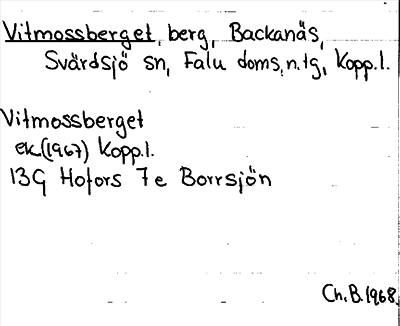 Vitmossberget, berg, Backanäs,
Svärdsjö sn, Falu doms.n.tg, Kopp.l.
Vitmossberget
ek(1967) Kopp.l.
13G Hofors 7e Borrsjön
Ch.B.1968.